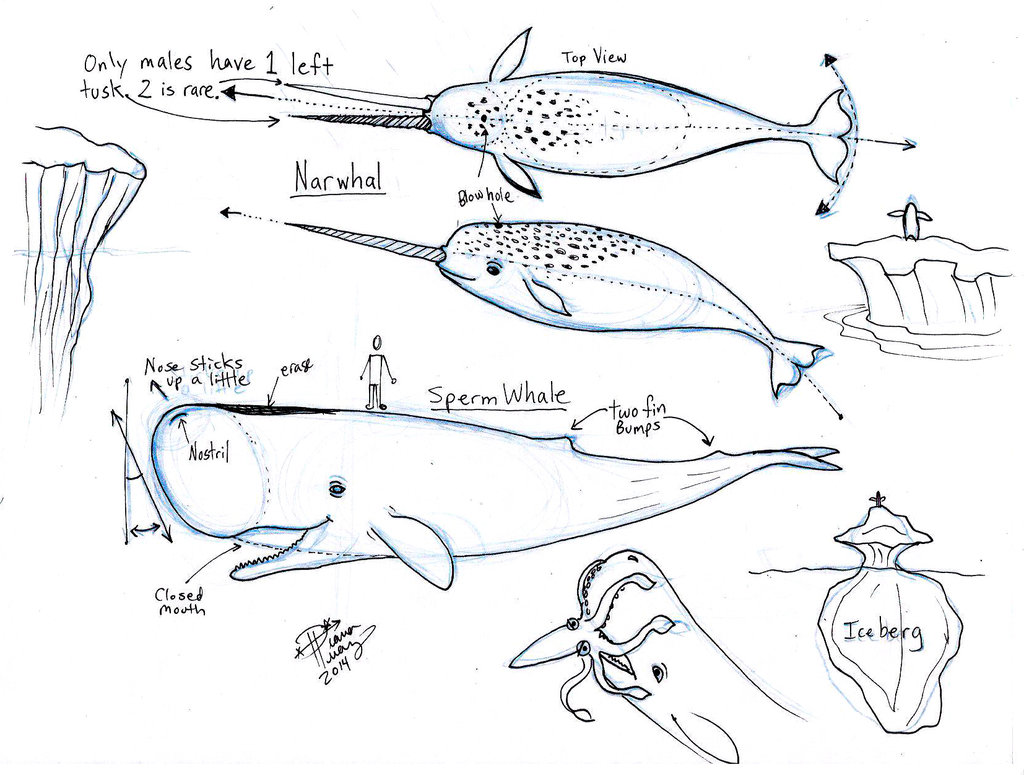 Only males have 1 left
tusk. 2 is rare.
Top View
Narwhal
Blowhole
Nose sticks
up a little
erase
Sperm Whale
Two fin
Bumps
Nostril
Closed
mouth
2014
Iceberg